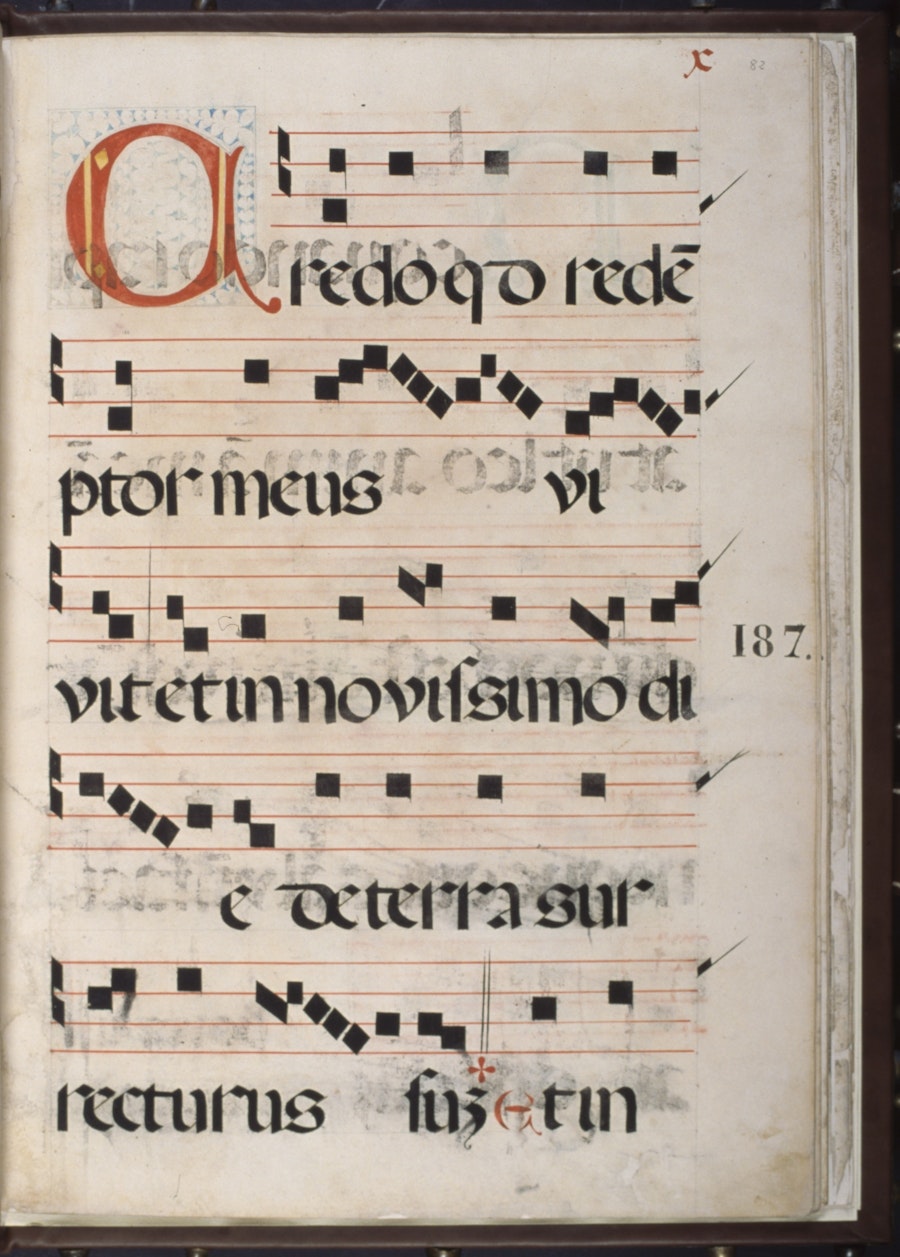 x 82
Credo qd redē
ptor meus vi
vit et in novissimo di
187.
e de terra sur
recturus suz et in